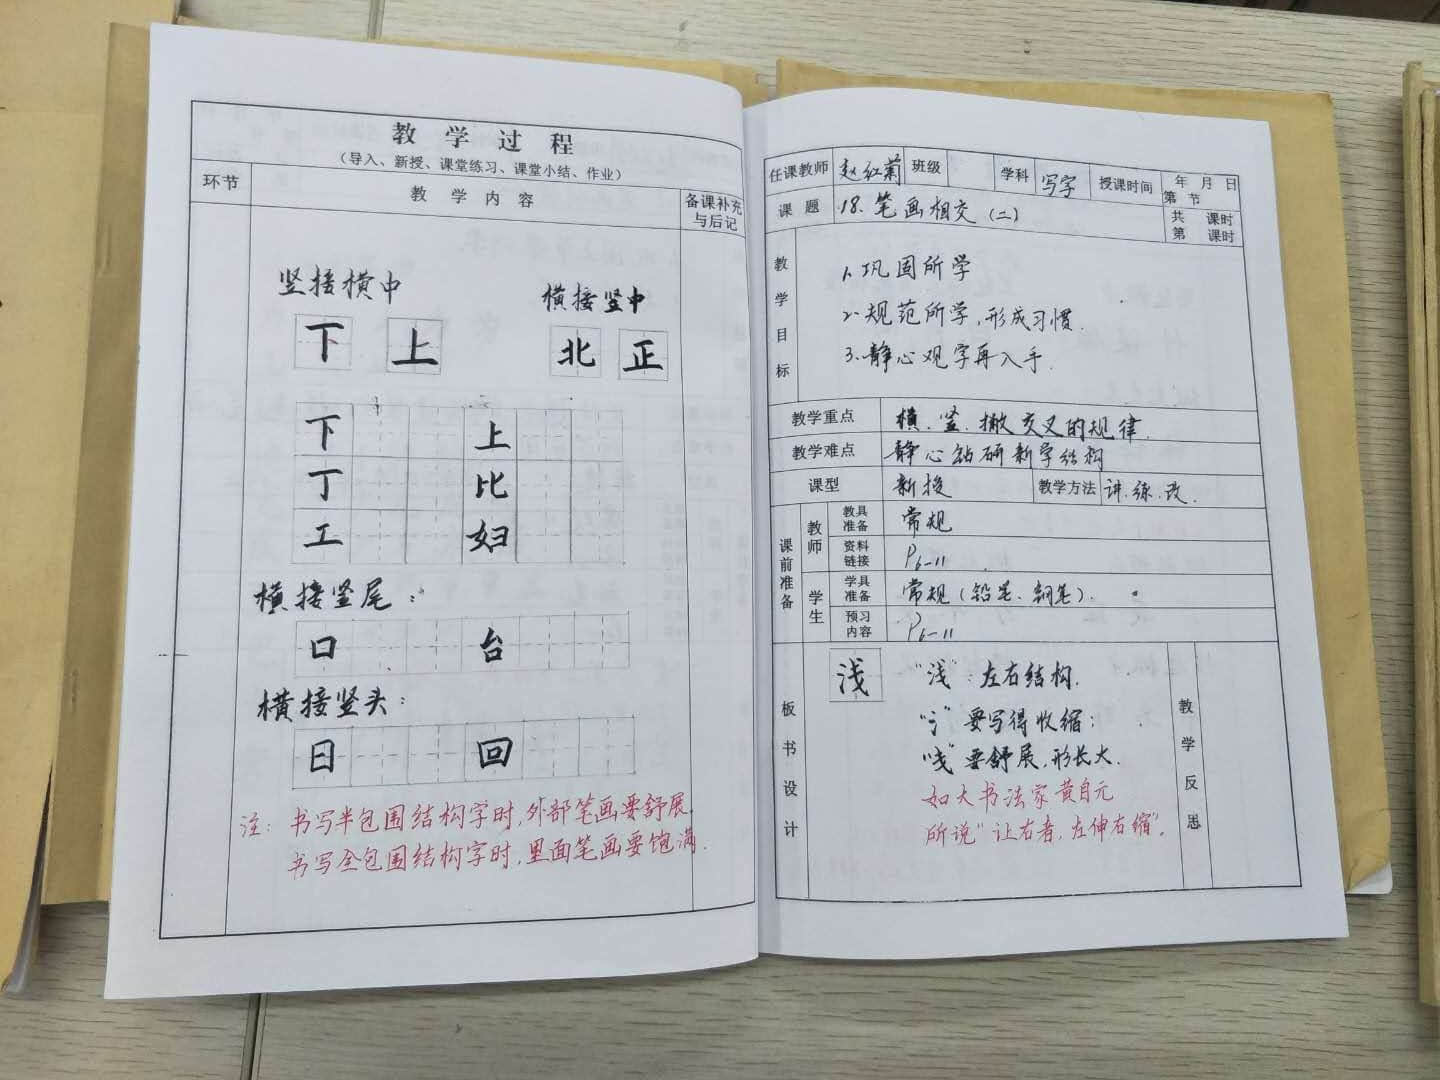 教 学 过 程
（导入、新授、课堂练习、课堂小结、作业）
环节
教 学 内 容
备课补充
与后记
竖接横中
横接竖中
下 上 北 正
下 上
丁 比
工 妇
横接竖尾：
口 台
横接竖头：
日 回
注：书写半包围结构字时,外部笔画要舒展.
书写全包围结构字时,里面笔画要饱满.
任课教师 赵红菊 班级 学科 写字 授课时间 年 月 日
第 节
课 题 18.笔画相交（二）
共 课时
第 课时
教学目标
1.巩固所学
2.规范所学,形成习惯.
3.静心观字再入手.
教学重点 横、竖、撇交叉的规律.
教学难点 静心钻研新学结构
课型 新授 教学方法 讲.练.改.
课前准备
教师
教具准备 常规
资料链接 P6-11
学生
学具准备 常规（铅笔、钢笔）.
预习内容 P6-11
板书设计
浅 “浅”：左右结构.
“氵”要写得收缩；
“戋”要舒展,形长大.
如大书法家黄自元
所说“让右者,左伸右缩”。
教学反思